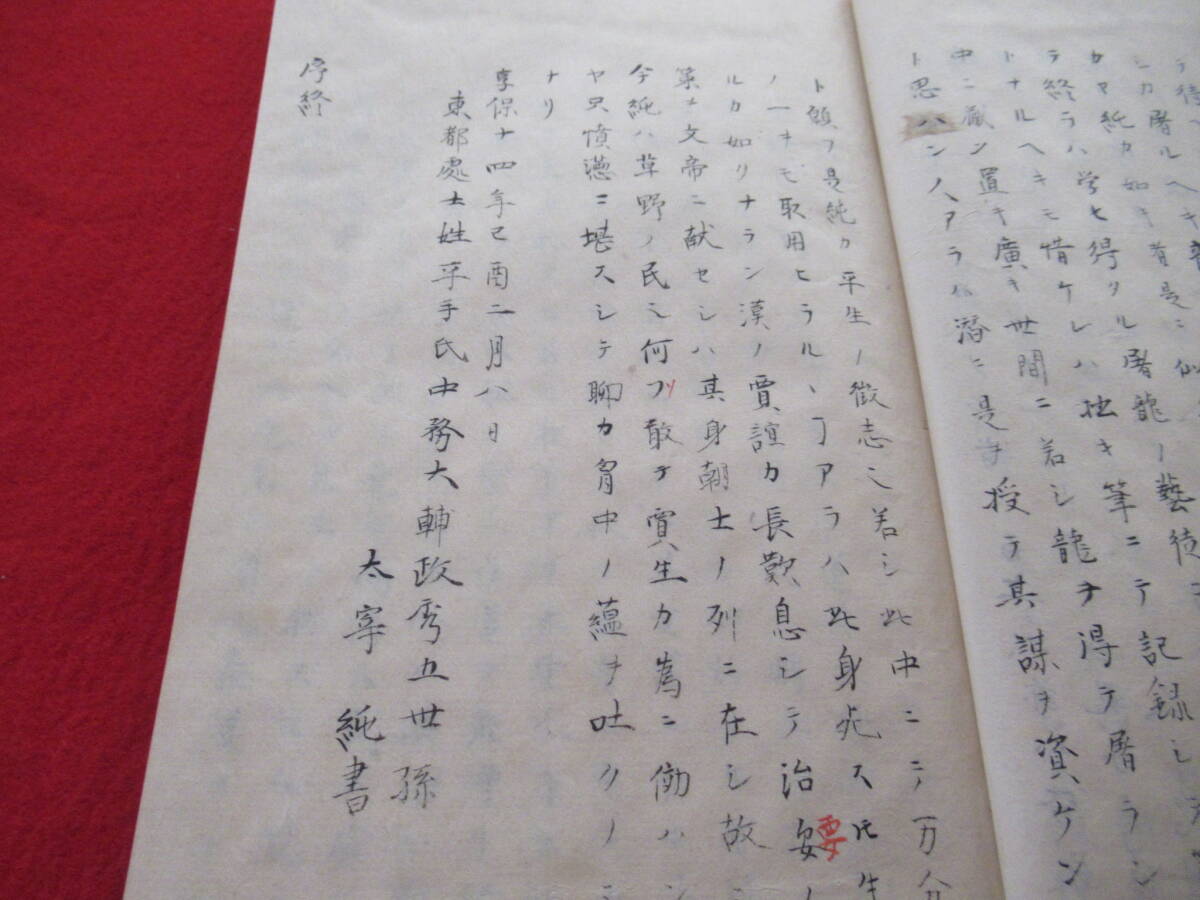 純カ如キ者是ニ似
テ終ラハ学ヒ得リル屠龍ノ藝徒
トナルヘキモ惜ケレハ拙キ筆ニテ記録シテ
中ニ蔵ン置キ廣キ世間ニ若シ龍ヲ得テ屠ラン
ト思ハン人アラハ潜ニ是ヲ授テ其謀ヲ資ケン
ト願フ是純カ平生ノ微志ミ若シ此中ニテ万分
ノ一キモ取用ヒラルヽヿアラハ此身死スヒ生
ルカ如リナラン漢ノ賈誼カ長歎息シテ治安要ノ
策ヲ文帝ニ献セシハ其身朝士ノ列ニ在シ故
今純ハ草野ノ民ミ何ソ敢テ賈生カ為ニ倣ハン
ヤ只憤懣ニ堪スシテ聊カ胷中ノ蘊ヲ吐クノミ
ナリ
享保十四年己酉二月八日
東都處士姓平手氏中務大輔政秀五世孫
太宰純書
序終